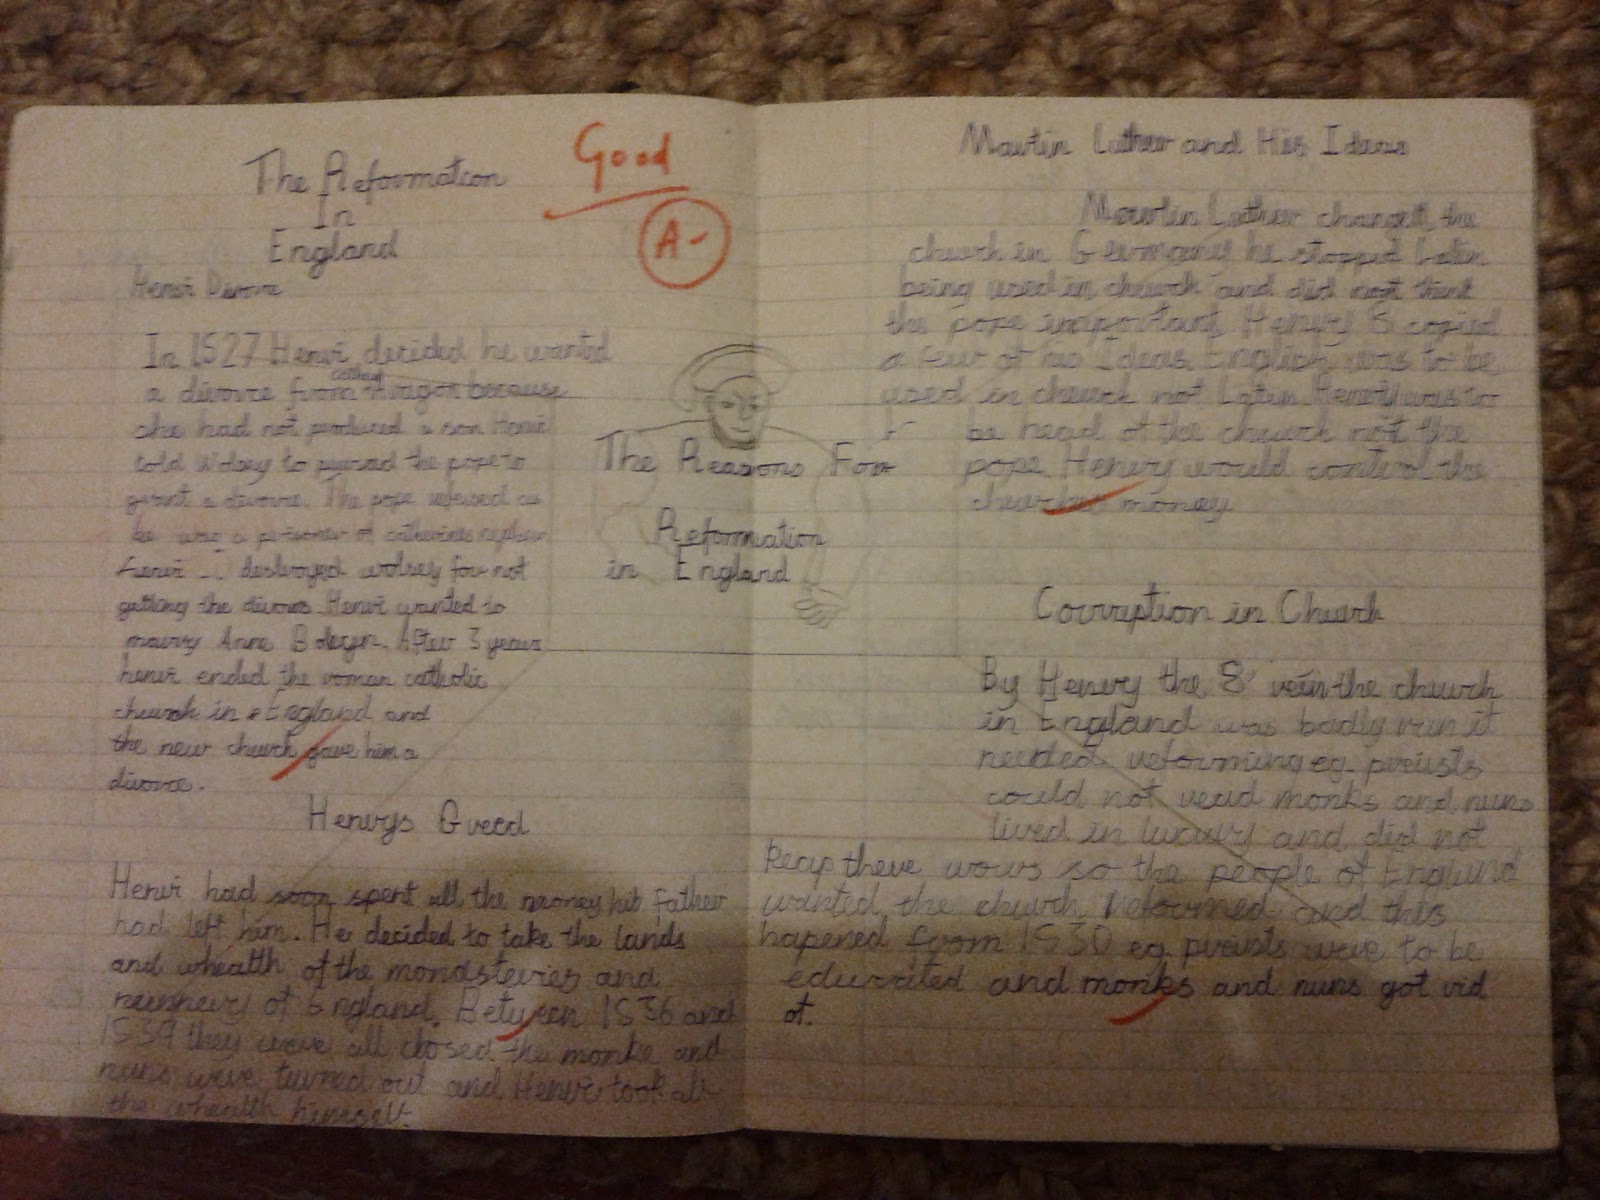 The Reformation
In
England
Good
A-
Henri Divorce
In 1527 Henri decided he wanted
a divorce from Aragon because
she had not produced a son Henri
told Wolsey to the pope to
grant a divorce. The pope refused as
he was a prisoner of catherines nephew
Henri destroyed wolsey for not
getting the divorce Henri wanted to
marry Anne Boleyn. After 3 years
henri ended the roman catholic
church in England and
the new church gave him a
divorce.
Henrys Greed
Henri had soon spent all the money his Father
had left him. He decided to take the lands
and whealth of the monasteries and
nunnery of England. Between 1536 and
1539 they were all closed the monks and
nuns were turned out and Henri took all
the whealth himself.
The Reasons For
Reformation
in England
Martin Luther and His Ideas
Martin Luther changed the
church in Germany he stopped Latin
being used in church and did not think
the pope important Henry 8 copied
a few of his Ideas English was to be
used in church not Latin Henry was to
be head of the church not the
pope Henry would control the
churches money
Corruption in Church
By Henry the 8 rein the church
in England was badly run it
needed reforming eg. preists
could not read monks and nuns
lived in luxury and did not
keap there wows so the people of England
wanted the church reformed and this
hapened from 1530 eg. preists were to be
educated and monks and nuns got rid
of.